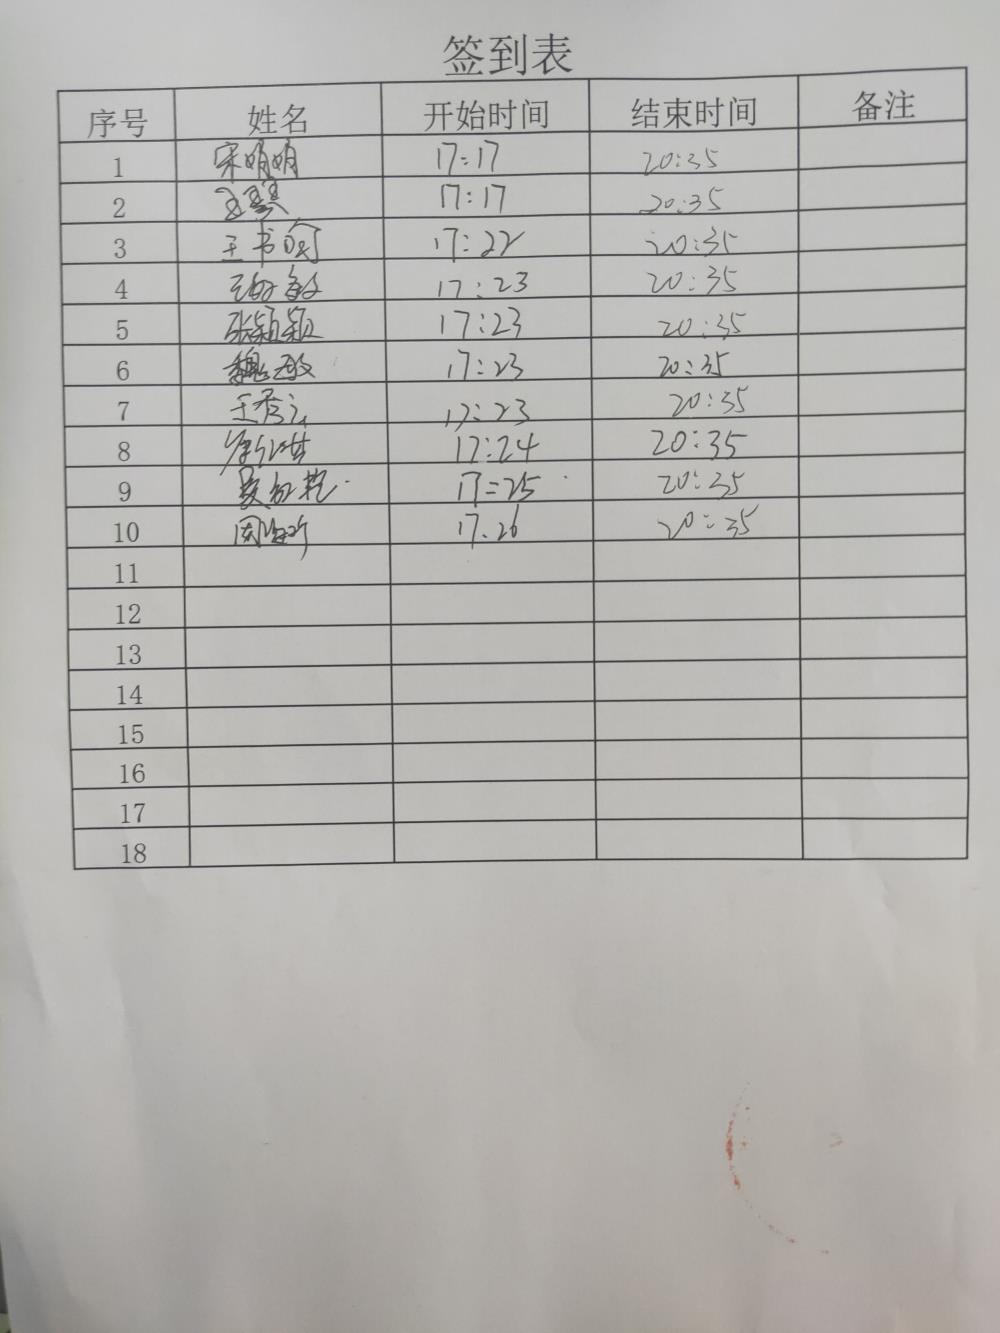 签到表
序号 姓名 开始时间 结束时间 备注
1 宋明明 17:17 20:35
2 17:17 20:35
3 王书 17:22 20:35
4 17:23 20:35
5 张颖颖 17:23 20:35
6 魏 17:23 20:35
7 王 17:23 20:35
8 17:24 20:35
9 17:25 20:35
10 周 17.26 20:35
11
12
13
14
15
16
17
18